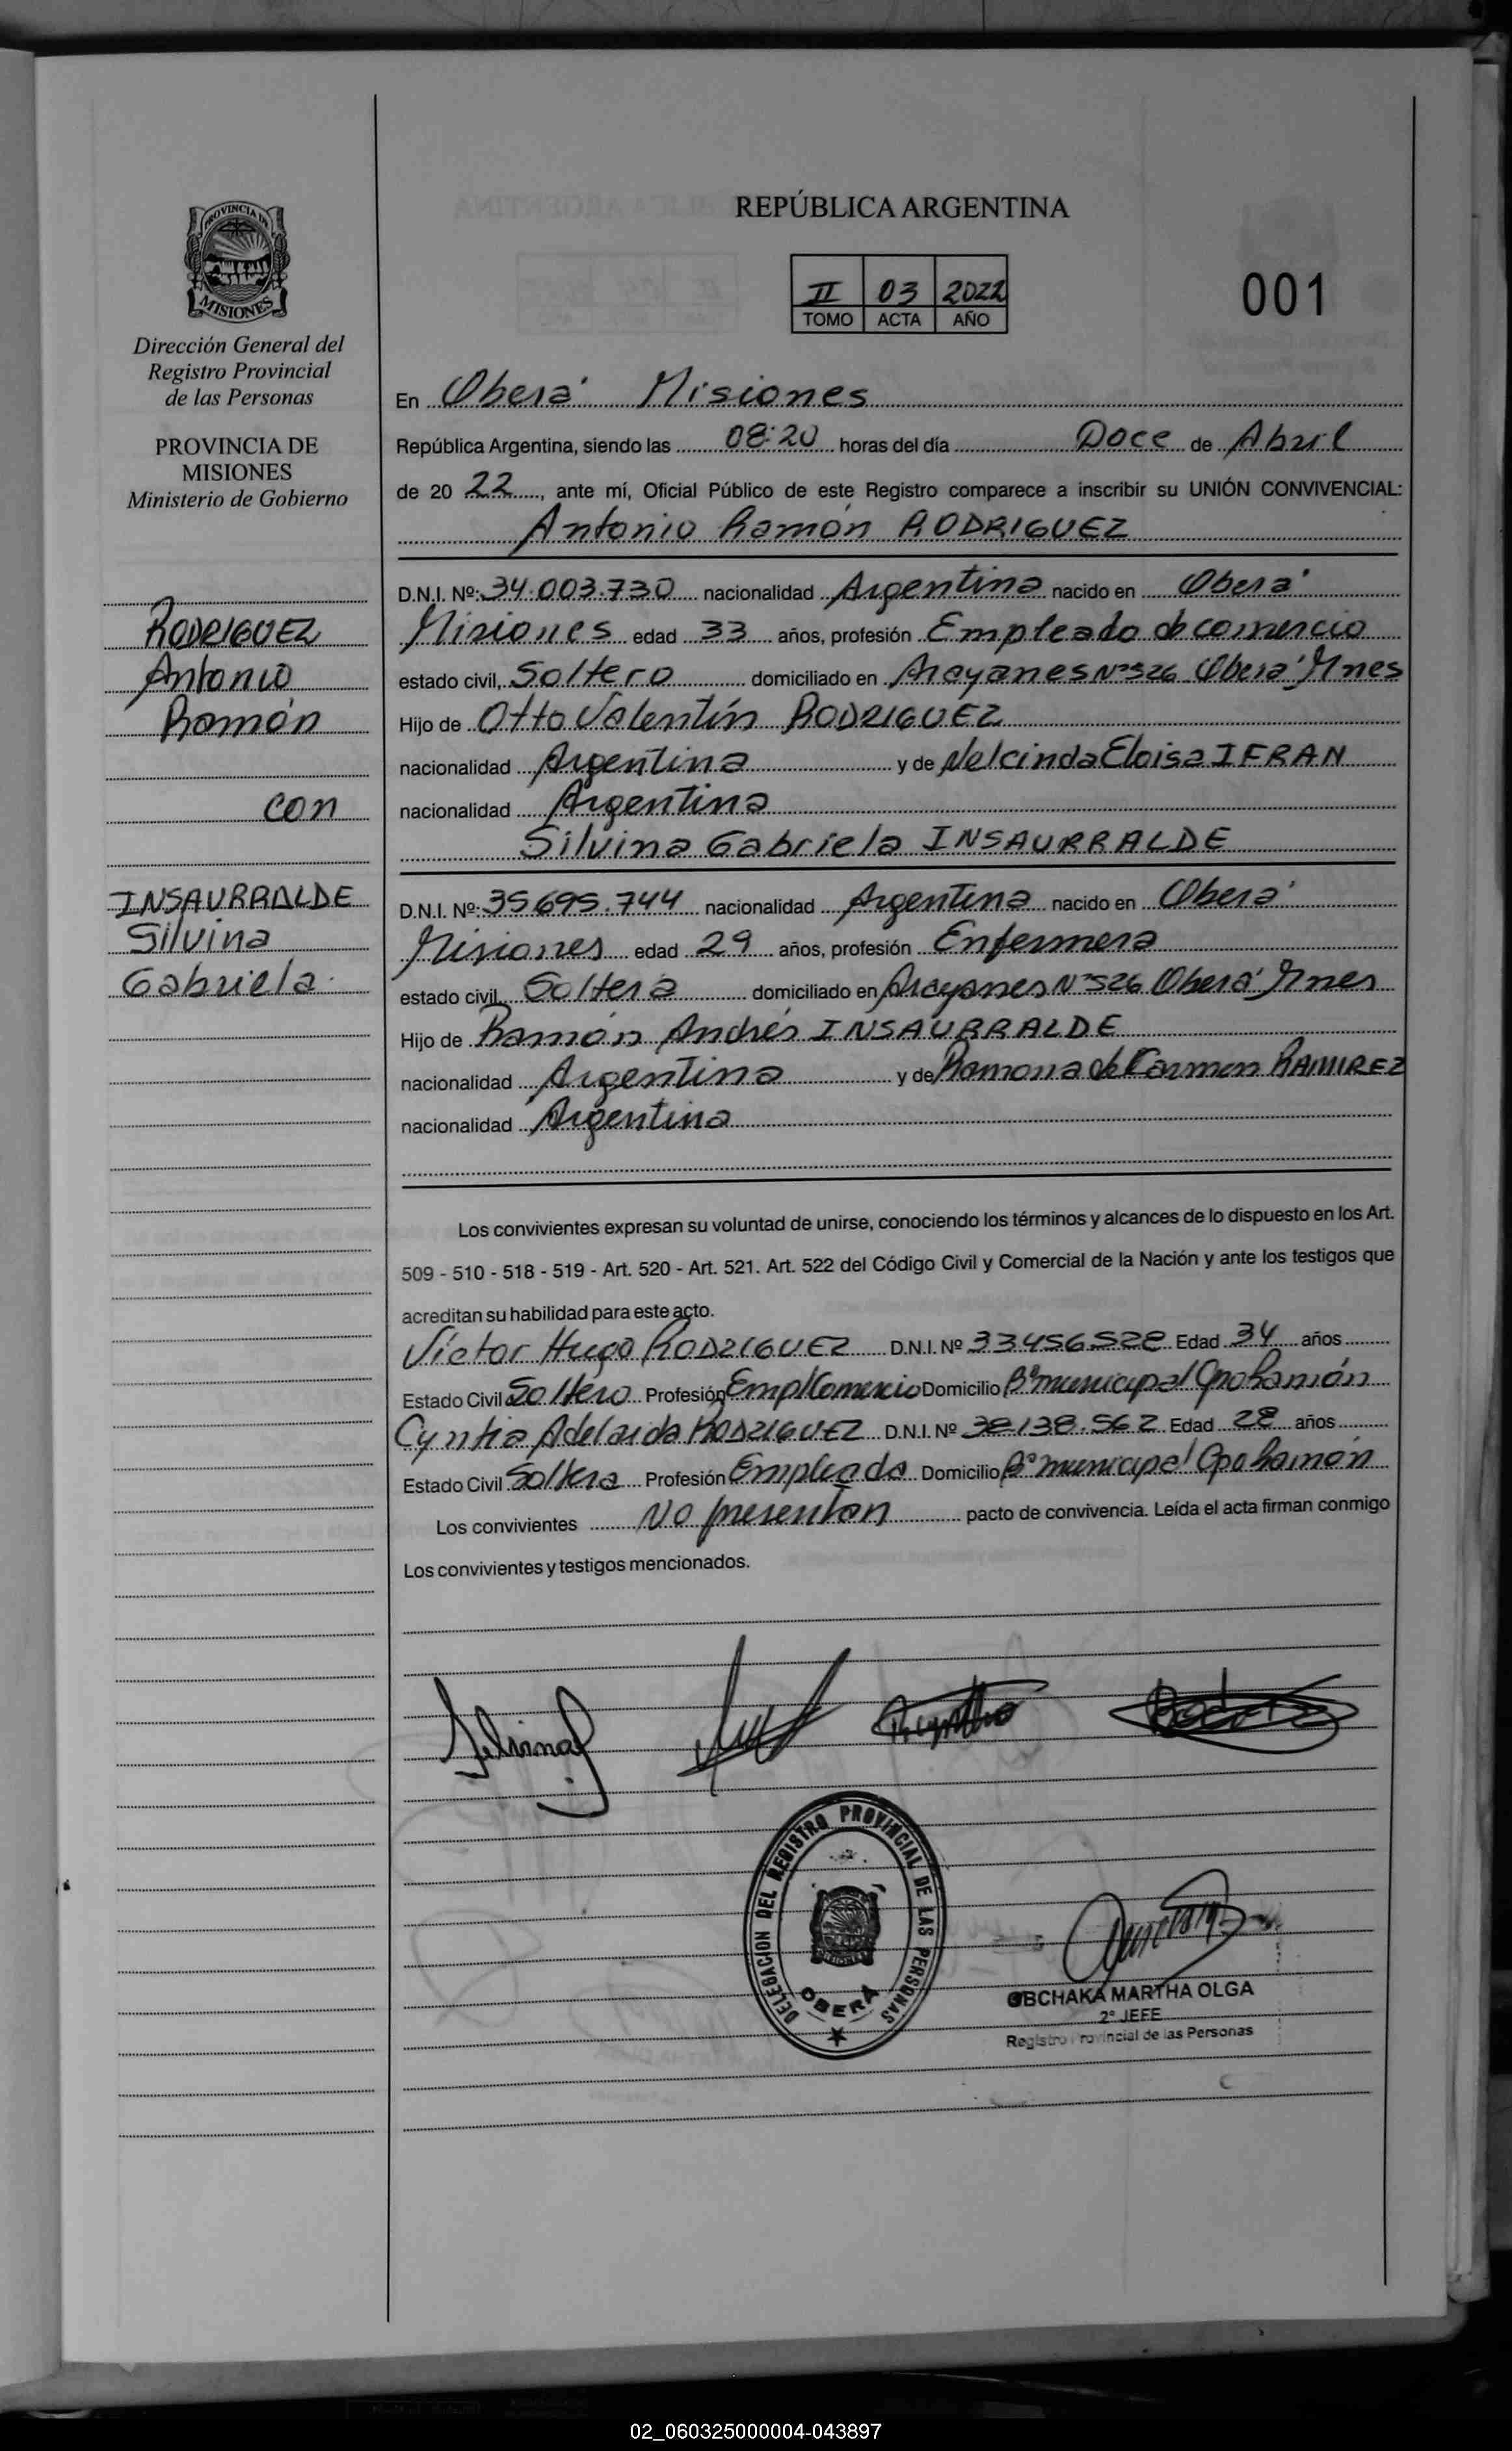 REPÚBLICA ARGENTINA
PROVINCIA DE
MISIONES
Dirección General del
Registro Provincial
de las Personas
PROVINCIA DE
MISIONES
Ministerio de Gobierno
RODRIGUEZ
Antonio
Ramón
con
INSAURRALDE
Silvina
Gabriela
II 03 2022
TOMO ACTA AÑO
001
En Oberá Misiones
República Argentina, siendo las 08:20 horas del día Doce de Abril
de 20 22, ante mí, Oficial Público de este Registro comparece a inscribir su UNIÓN CONVIVENCIAL:
Antonio Ramón RODRIGUEZ
D.N.I. Nº: 34.003.730 nacionalidad Argentina nacido en Oberá
Misiones edad 33 años, profesión Empleado de comercio
estado civil, Soltero domiciliado en Arayanes Nº 526 Oberá Mnes
Hijo de Otto Valentín RODRIGUEZ
nacionalidad Argentina y de Nelcinda Eloisa IFRAN
nacionalidad Argentina
Silvina Gabriela INSAURRALDE
D.N.I. Nº: 35.695.744 nacionalidad Argentina nacido en Oberá
Misiones edad 29 años, profesión Enfermera
estado civil, Soltera domiciliado en Arayanes Nº 526 Oberá Mnes
Hijo de Ramón Andrés INSAURRALDE
nacionalidad Argentina y de Ramona de Carmen RAMIREZ
nacionalidad Argentina
Los convivientes expresan su voluntad de unirse, conociendo los términos y alcances de lo dispuesto en los Art.
509 - 510 - 518 - 519 - Art. 520 - Art. 521. Art. 522 del Código Civil y Comercial de la Nación y ante los testigos que
acreditan su habilidad para este acto.
Víctor Hugo RODRIGUEZ D.N.I. Nº 33456528 Edad 34 años
Estado Civil Soltero Profesión Empl Comercio Domicilio Bº municipal Cpo Ramón
Cyntia Adelaida RODRIGUEZ D.N.I. Nº 38.138.562 Edad 28 años
Estado Civil Soltera Profesión Empleada Domicilio Bº municipal Cpo Ramón
Los convivientes No presentan pacto de convivencia. Leída el acta firman conmigo
Los convivientes y testigos mencionados.
DELEGACION DEL REGISTRO PROVINCIAL DE LAS PERSONAS
MISIONES
OBERA
OBCHAKA MARTHA OLGA
2° JEFE
Registro Provincial de las Personas
02_060325000004-043897